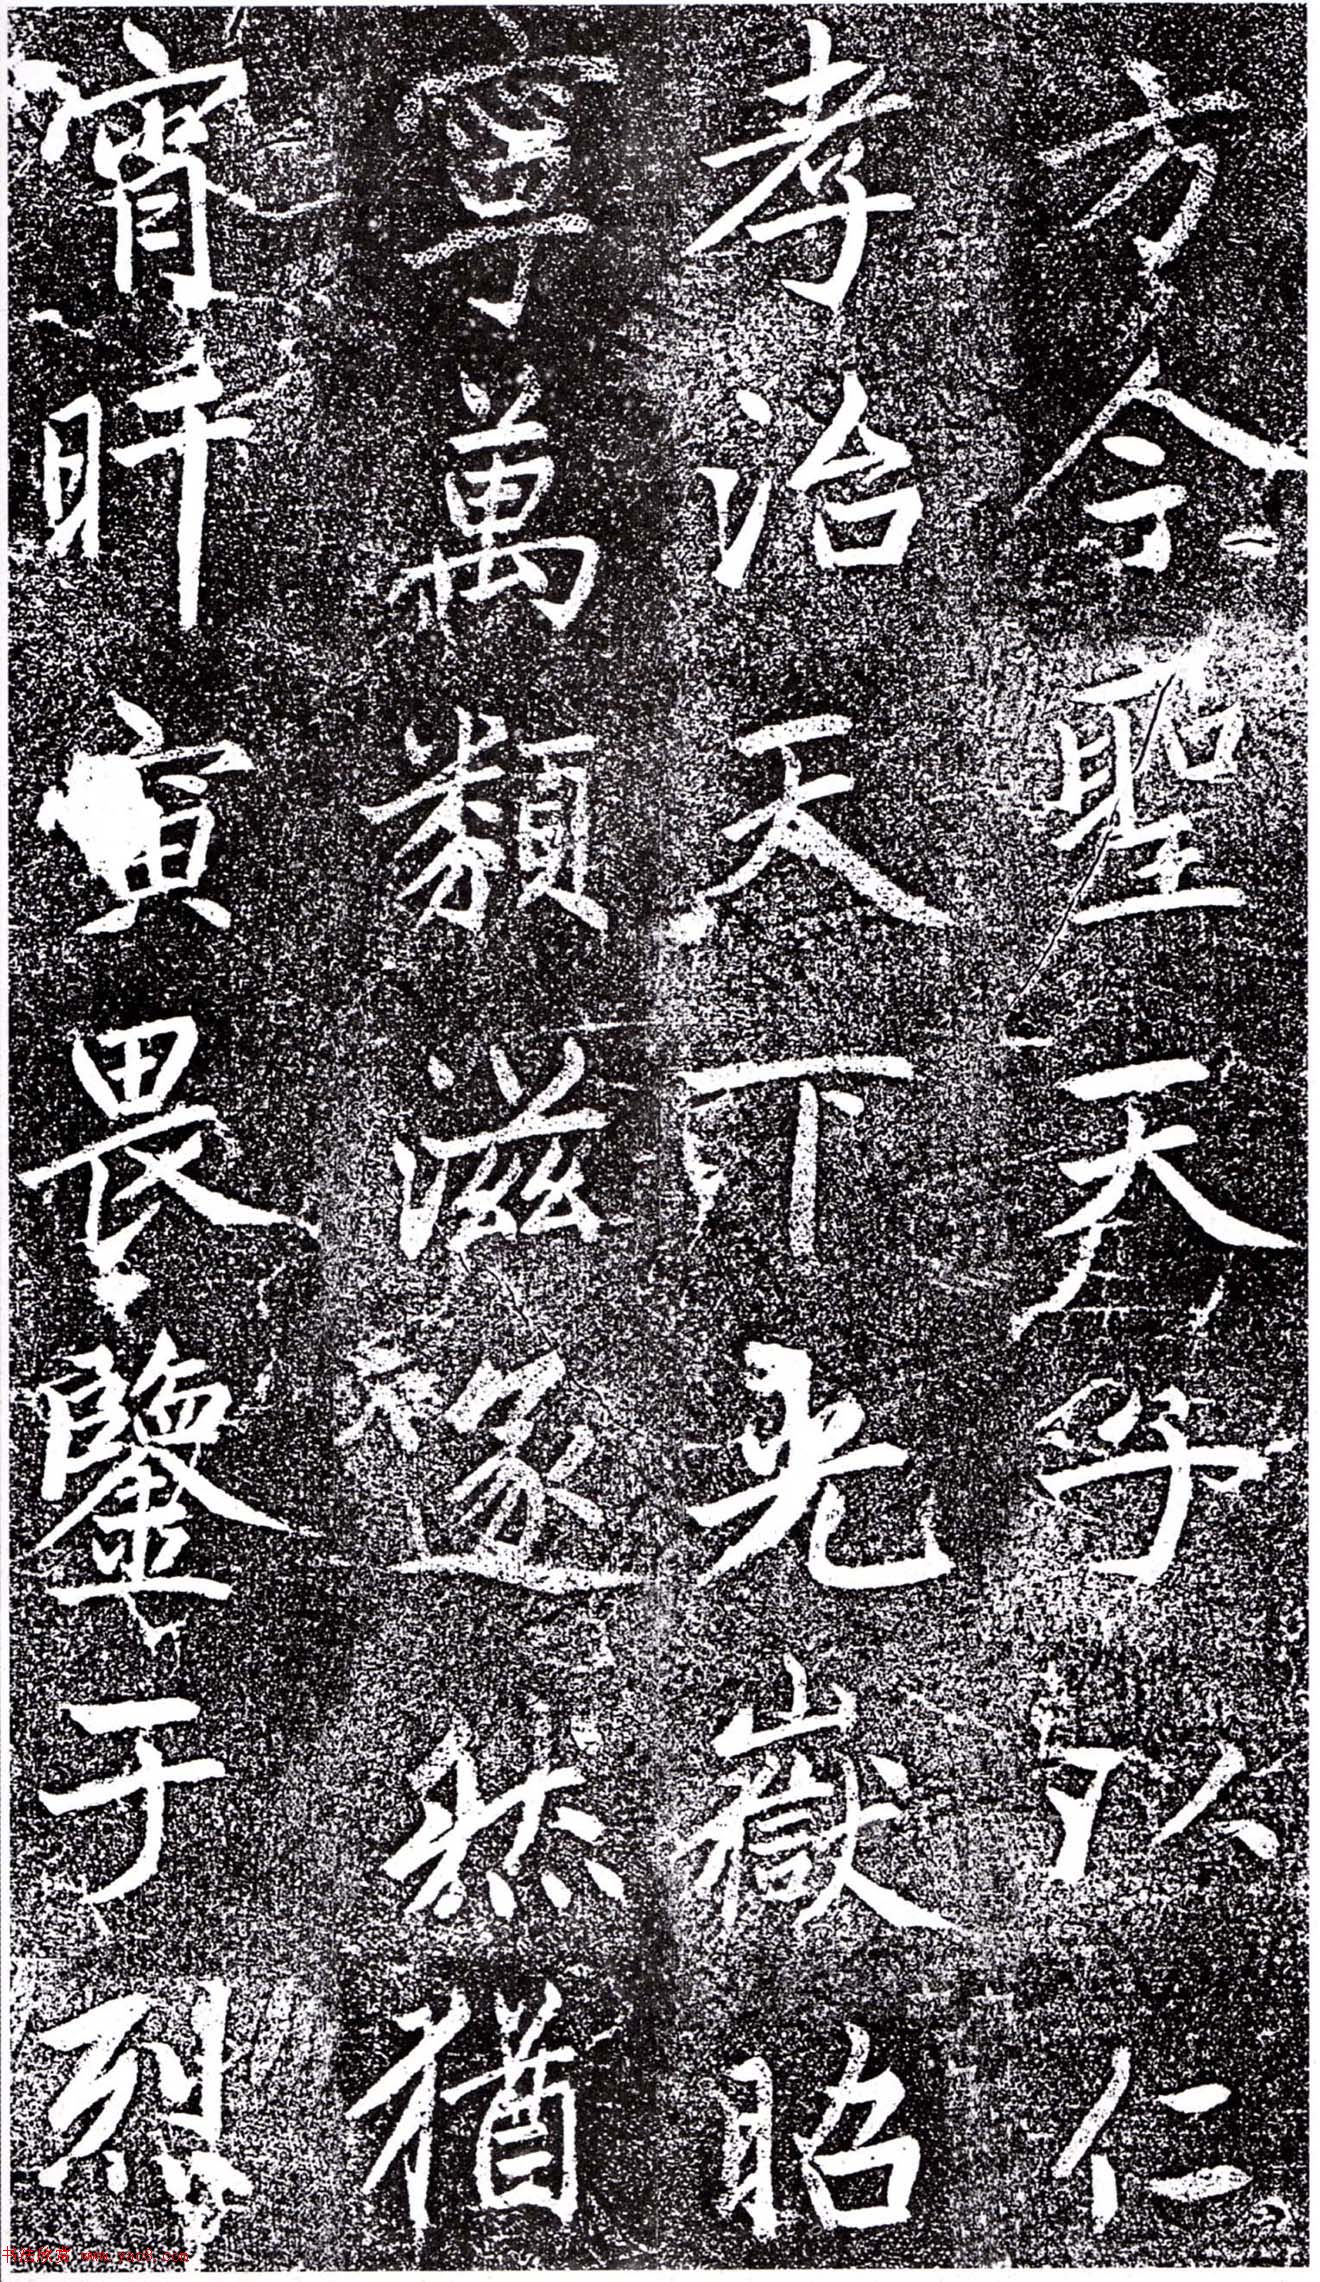 方今聖天子以仁
孝治天下光嶽昭
寧萬類滋遂然猶
宵旰寅畏鑒于烈
书法欣赏 www.yac8.com